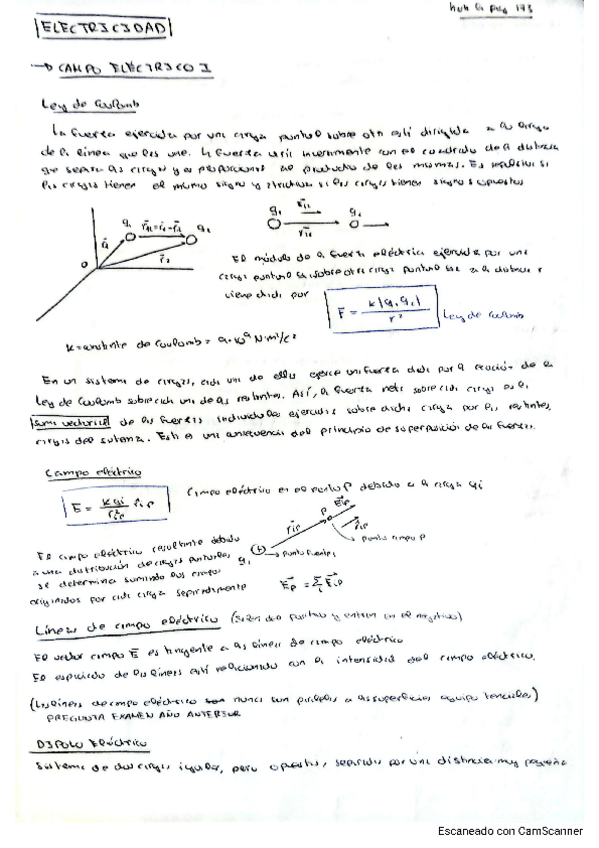 hasta la pág 173
ELECTRICIDAD
→ CAMPO ELÉCTRICO I
Ley de Coulomb
La fuerza ejercida por una carga puntual sobre otra está dirigida a lo largo
de la línea que las une. La fuerza varía inversamente con el cuadrado de la distancia
que separa las cargas y es proporcional al producto de las mismas. Es repulsiva si
las cargas tienen el mismo signo y atractiva si las cargas tienen signos opuestos
El módulo de la fuerza eléctrica ejercida por una
carga puntual q₁ sobre otra carga puntual q₂ a la distancia r
viene dado por
F = k|q₁q₂| / r²
Ley de Coulomb
K = constante de Coulomb = 9·10⁹ N·m²/C²
En un sistema de cargas, cada una de ellas ejerce una fuerza dada por la ecuación de la
Ley de Coulomb sobre cada una de las restantes. Así, la fuerza neta sobre cada carga es la
suma vectorial de las fuerzas individuales ejercidas sobre dicha carga por las restantes
cargas del sistema. Esto es una consecuencia del principio de superposición de las fuerzas.
Campo eléctrico
E = k qi / r²iP r̂iP
Campo eléctrico en el punto P debido a la carga qi
El campo eléctrico resultante debido
a una distribución de cargas puntuales
se determina sumando los campos
originados por cada carga separadamente
punto campo P
punto fuente i
E⃗P = Σi E⃗iP
Líneas de campo eléctrico (Salen del positivo y entran en el negativo)
El vector campo E⃗ es tangente a las líneas de campo eléctrico
El espaciado de las líneas está relacionado con la intensidad del campo eléctrico.
(Las líneas de campo eléctrico nunca son paralelas a las superficies equipotenciales)
PREGUNTA EXAMEN AÑO ANTERIOR
DIPOLO ELÉCTRICO
Sistema de dos cargas iguales, pero opuestas, separadas por una distancia muy pequeña
Escaneado con CamScanner